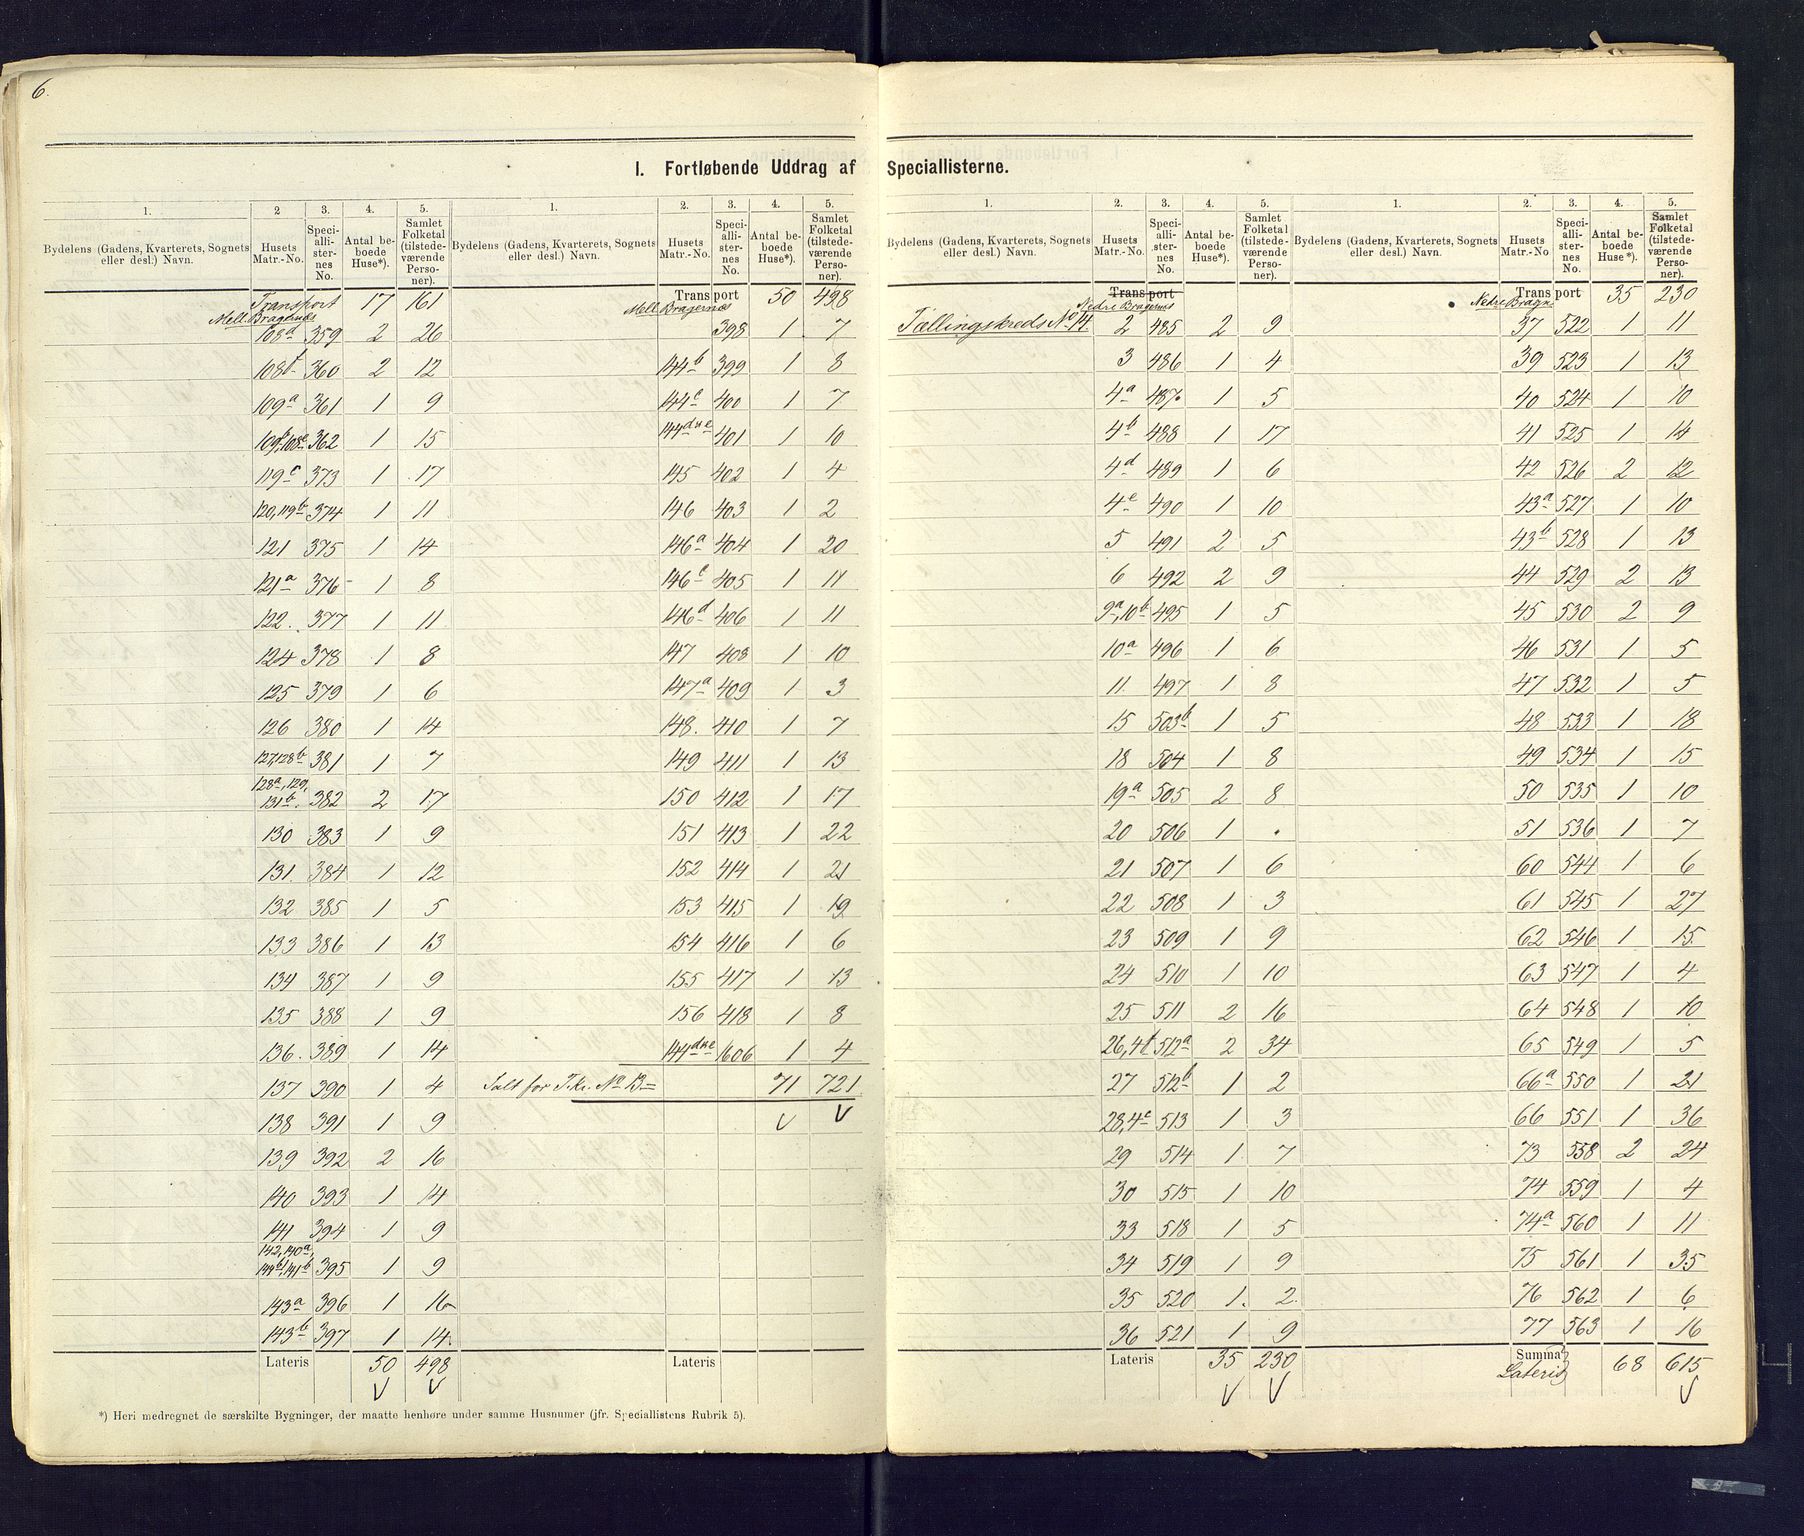 6.
I. Fortløbende Uddrag af Speciallisterne.
1. 2 3. 4. 5. 1. 2. 3. 4. 5.
Bydelens (Gadens, Kvarterets, Sognets eller desl.) Navn. Husets Matr.-No. Speciallisternes No. Antal beboede Huse*). Samlet Folketal (tilstedeværende Personer). Bydelens (Gadens, Kvarterets, Sognets eller desl.) Navn. Husets Matr.-No. Speciallisternes No. Antal beboede Huse*). Samlet Folketal (tilstedeværende Personer).
Transport 17 161
Mell. Bragernæs
108d 359 2 26
108f 360 2 12
109a 361 1 9
109b, 108e 362 1 15
119c 373 1 17
120, 119b 374 1 11
121 375 1 14
121a 376 1 8
122. 377 1 11
124 378 1 8
125 379 1 6
126 380 1 14
127, 128b 381 1 7
128a, 129,
131b. 382 2 17
130 383 1 9
131. 384 1 12
132 385 1 5
133 386 1 13
134 387 1 9
135 388 1 9
136. 389 1 14
137 390 1 4
138 391 1 9
139 392 2 16
140 393 1 14
141 394 1 9
142, 140a,
144b, 141b 395 1 9
143a 396 1 16
143b 397 1 14.
Lateris 50 498
Transport 50 498
Mell. Bragernæs
398 1 7
144b 399 1 8
144c 400 1 7
144d & e 401 1 10
145 402 1 4
146 403 1 2
146a 404 1 20
146c 405 1 11
146d 406 1 11
147 408 1 10
147a 409 1 3
148. 410 1 7
149 411 1 13
150 412 1 17
151 413 1 22
152 414 1 21
153 415 1 19
154 416 1 6
155 417 1 13
156 418 1 8
144d & e 1606 1 4
Talt for T.kr. No 13 71 721
Lateris
*) Heri medregnet de særskilte Bygninger, der maatte henhøre under samme Husnumer (jfr. Speciallistens Rubrik 5).
1. 2. 3. 4. 5. 1. 2. 3. 4. 5.
Bydelens (Gadens, Kvarterets, Sognets eller desl.) Navn. Husets Matr.-No. Speciallisternes No. Antal beboede Huse*). Samlet Folketal (tilstedeværende Personer). Bydelens (Gadens, Kvarterets, Sognets eller desl.) Navn. Husets Matr.-No. Speciallisternes No. Antal beboede Huse*). Samlet Folketal (tilstedeværende Personer).
Transport
Nedre Bragernæs
Tællingskreds No 14. 2 485 2 9
3 486 1 4
4a 487. 1 5
4b 488 1 17
4d 489 1 6
4e 490 1 10
5 491 2 5
6 492 2 9
9a, 10b 495 1 5
10a 496 1 6
11. 497 1 8
15 503b 1 5
18 504 1 8
19a 505 2 8
20 506 1 .
21 507 1 6
22 508 1 3
23 509 1 9
24 510 1 10
25 511 2 16
26, 4f 512a 2 34
27 512b 1 2
28, 4c 513 1 3
29 514 1 7
30 515 1 10
33 518 1 5
34 519 1 9
35 520 1. 2.
36 521 1 9
Lateris 35 230
Transport 35 230
Nedre Bragn.
37 522 1 11
39 523 1 13
40 524 1 10
41 525 1 14
42 526 2 12
43a 527 1 10
43b 528 1 13
44 529 2 13
45 530 2 9
46 531 1 5
47 532 1 5
48 533 1 18
49 534 1 15
50 535 1 10
51 536 1 7
60 544 1 6
61 545 1 27
62 546 1 15.
63 547 1 4
64 548 1 10
65 549 1 5
66a 550 1 21
66 551 1 36
73 558 2 24
74 559 1 4
74a 560 1 11
75 561 1 35
76 562 1 6
77 563 1 16
Summa
Lateris 68 615